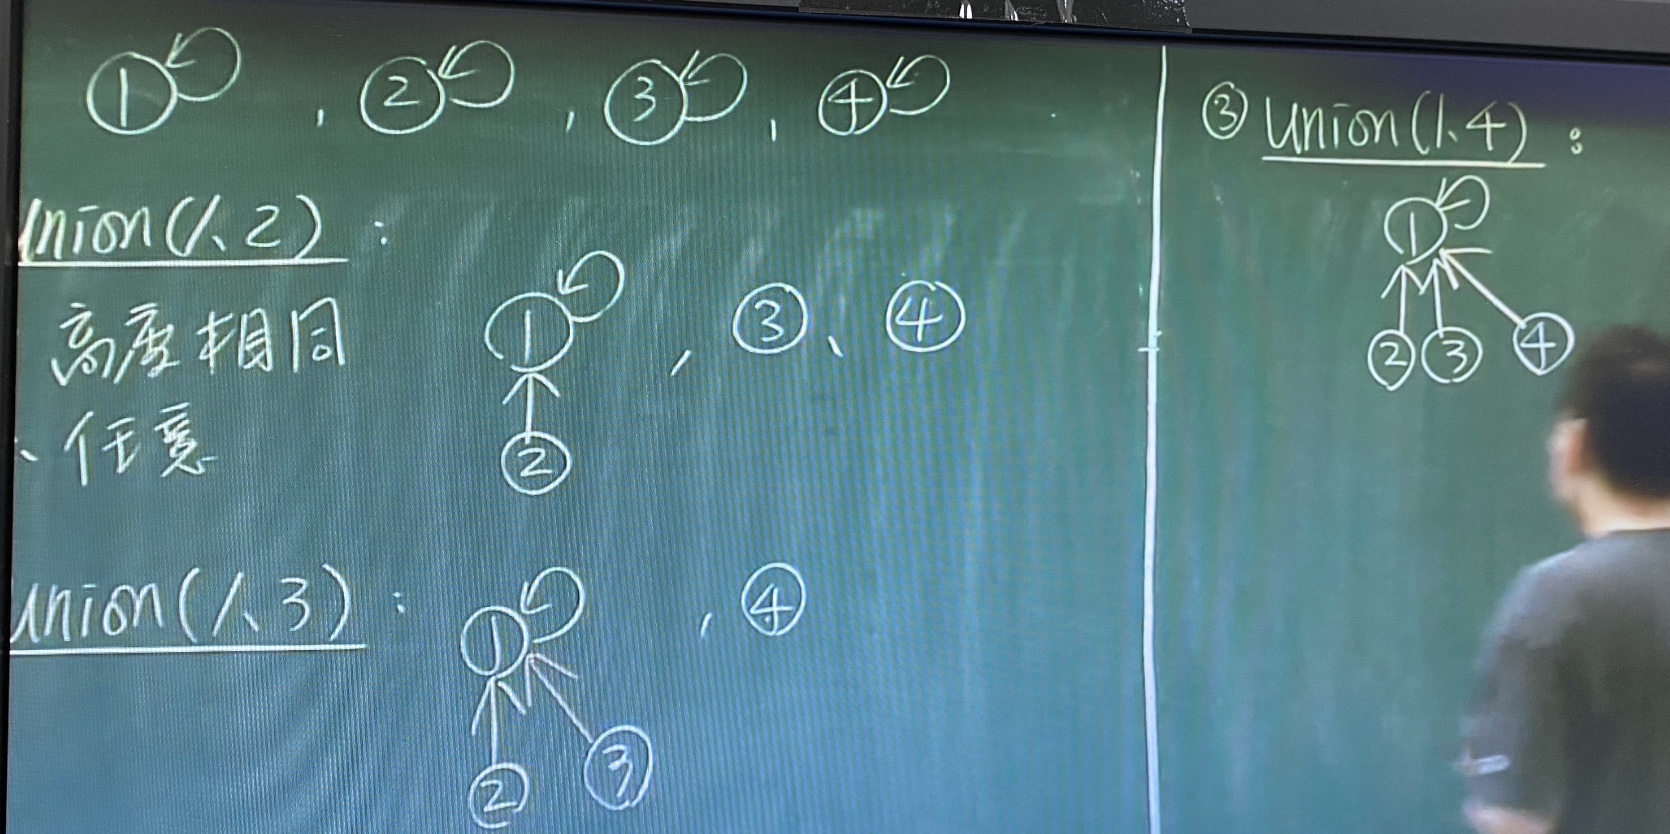 1 , 2 , 3 , 4
union(1、2) :
高度相同
、任意
1 , 3 、 4
2
union(1、3) :
1 , 4
2 3
③ union(1、4) :
1
2 3 4